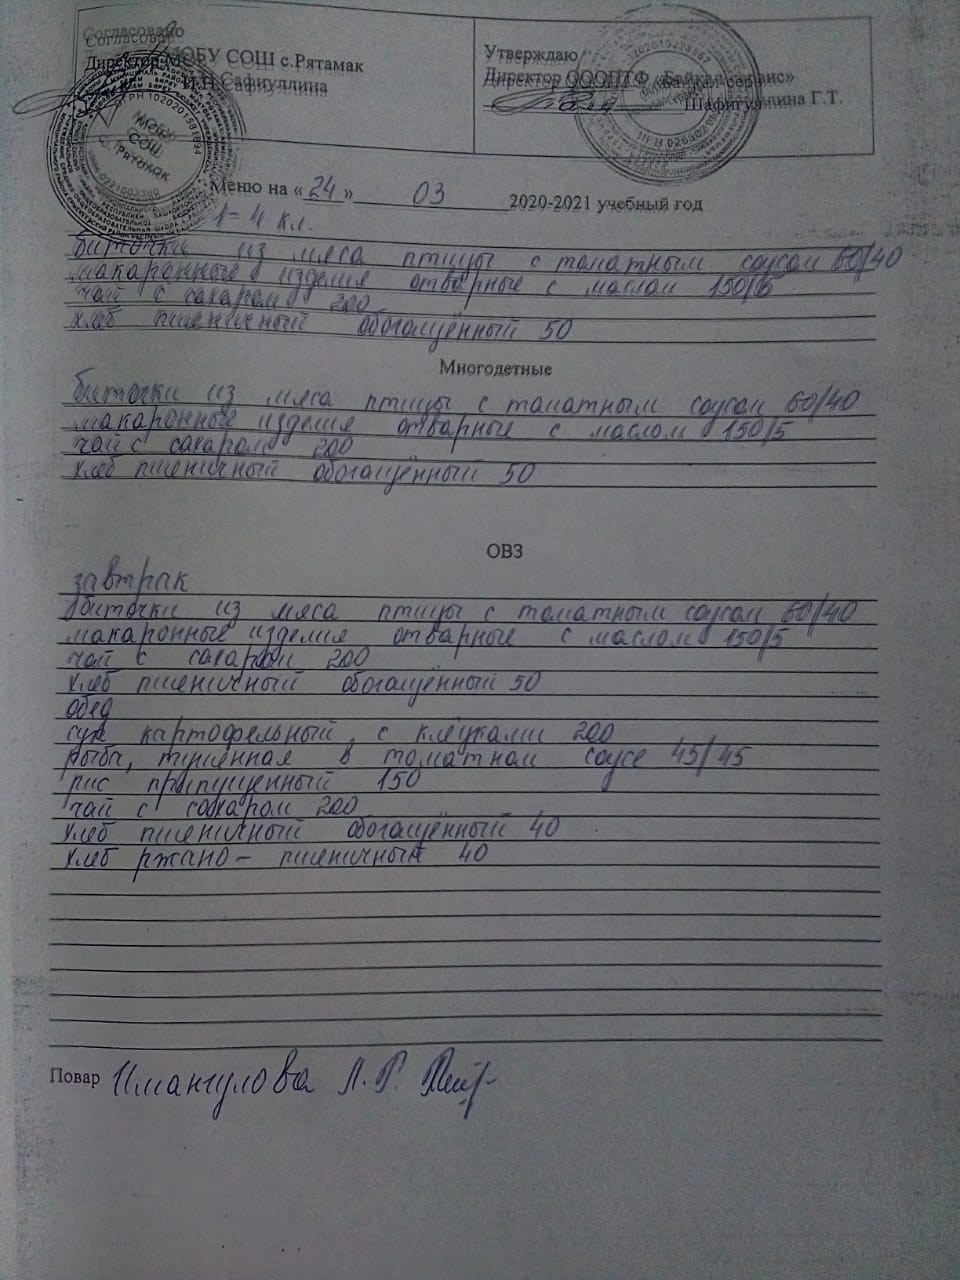 Согласовано
Согласовано
Директор МОБУ СОШ с.Рятамак
И.Н.Сафиуллина
Утверждаю
Директор ОООПТФ «Байкал сервис»
Шафигуллина Г.Т.
МОБУ
СОШ
с. Рятамак
ОГРН 1020201581894
Меню на «24» 03 2020-2021 учебный год
1-4 кл.
биточки из мяса птицы с томатным соусом 60/40
макаронные изделия отварные с маслом 150/5
чай с сахаром 200
хлеб пшеничный обогащённый 50
Многодетные
биточки из мяса птицы с томатным соусом 60/40
макаронные изделия отварные с маслом 150/5
чай с сахаром 200
хлеб пшеничный обогащённый 50
ОВЗ
завтрак
биточки из мяса птицы с томатным соусом 60/40
макаронные изделия отварные с маслом 150/5
чай с сахаром 200
хлеб пшеничный обогащённый 50
обед
суп картофельный с клёцками 200
рыба, тушенная в томатном соусе 45/45
рис припущенный 150
чай с сахаром 200
хлеб пшеничный обогащённый 40
хлеб ржано-пшеничный 40
Повар Имангулова Л.Г.